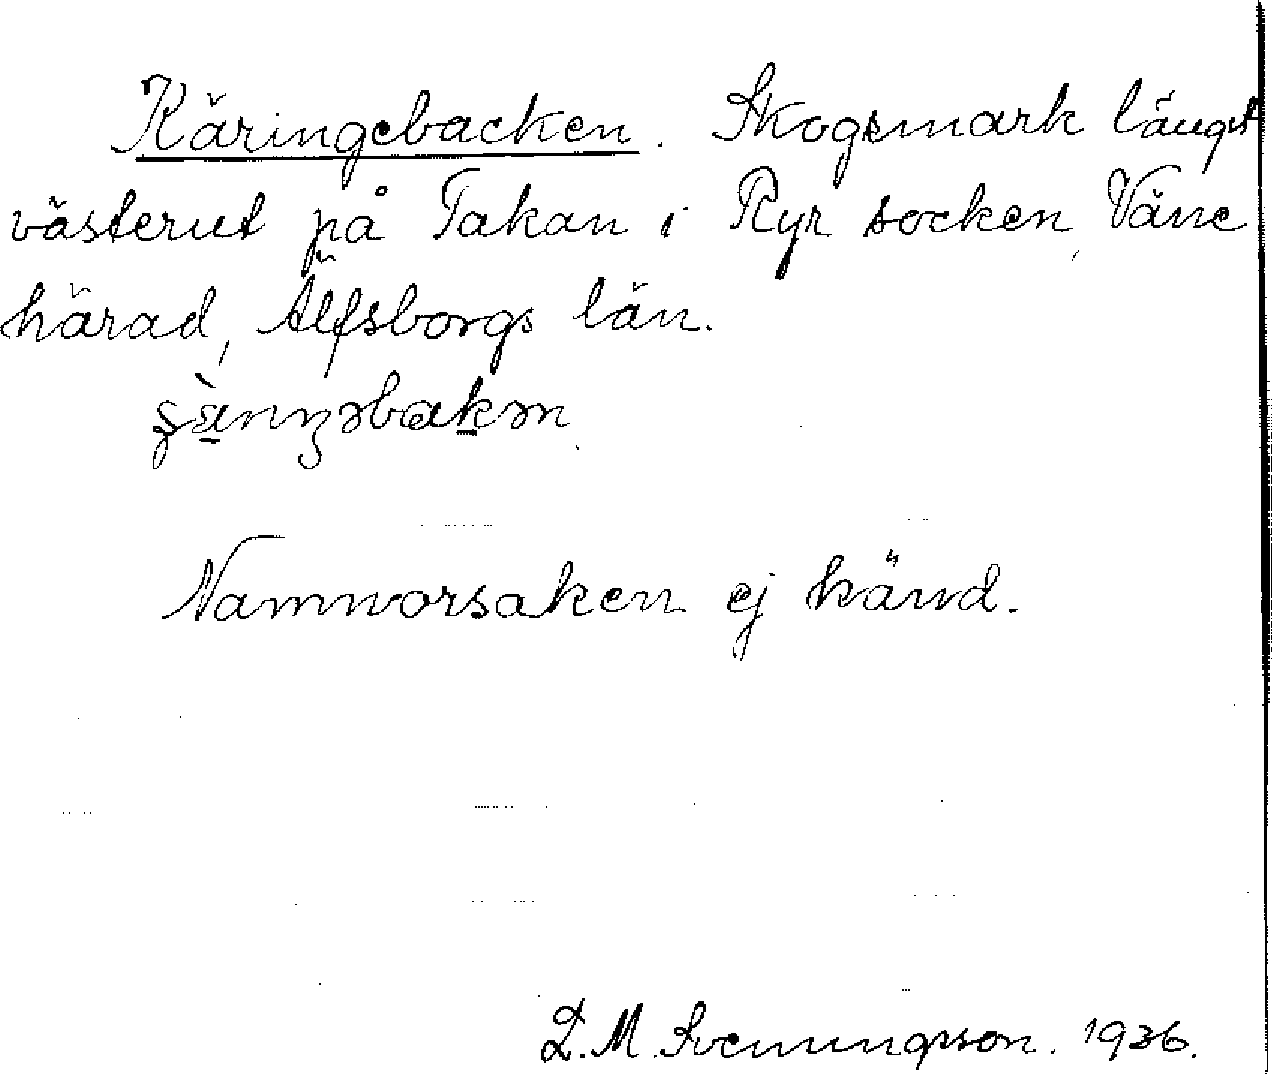 Käringebacken. Skogsmark längst
västerut på Takan i Ryr socken, Väne
härad, Älfsborgs län.
Namnorsaken ej känd.
D. M. Svenungsson. 1936.